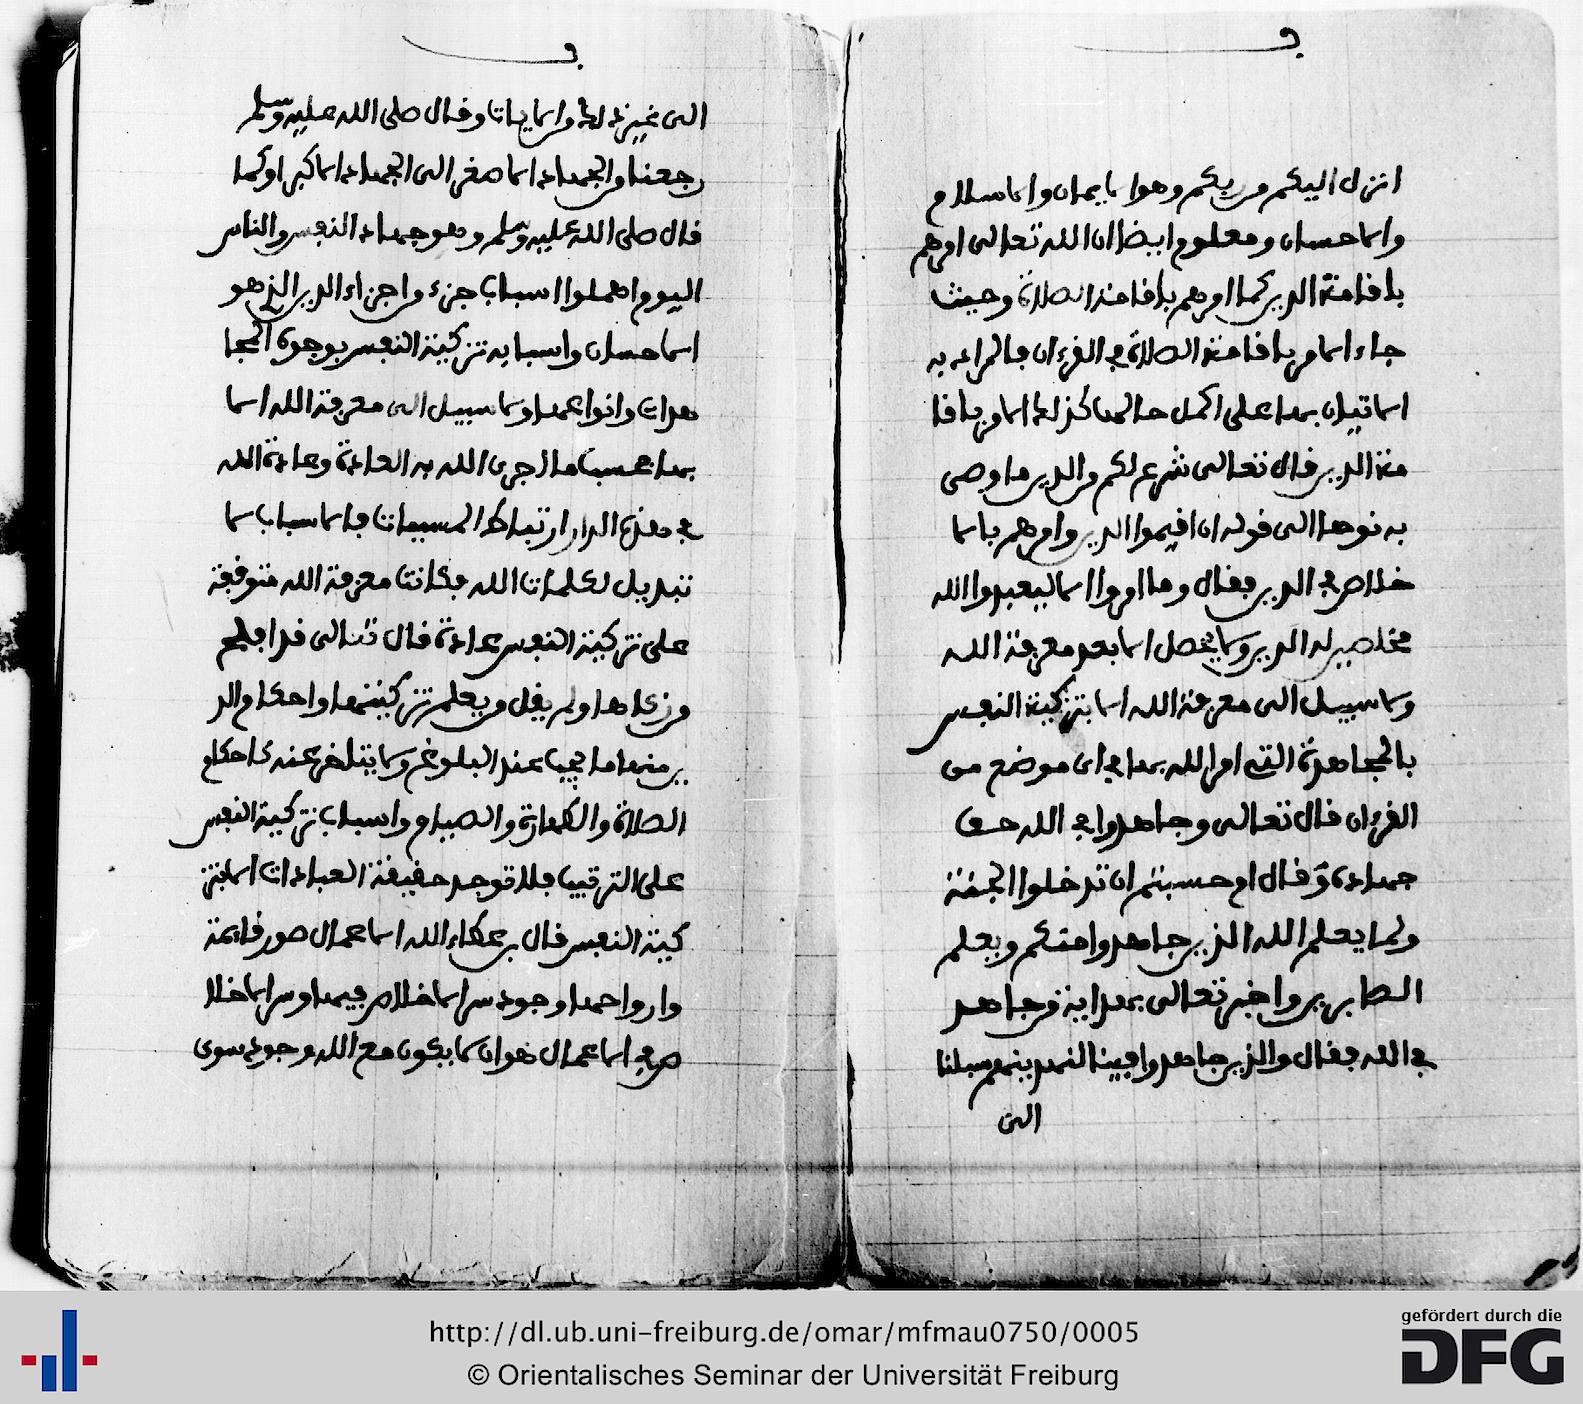 انزل اليكم من ربكم وهو الايمان والاسلام
والاحسان ومعلوم ايضا ان الله تعالى امرهم
باقامة الدين كما امرهم باقامة الصلاة وحيث
جاء الامر باقامة الصلاة في القرءان فالمراد به
الاتيان بها على اكمل حالها كذلك الامر باقا
مة الدين قال تعالى شرع لكم من الدين ما وصى
به نوحا الى قوله ان اقيموا الدين وامرهم بالا
خلاص في الدين فقال وما امروا الا ليعبدوا الله
مخلصين له الدين ولا يحصل الا بعد معرفة الله
ولا سبيل الى معرفة الله الا بتزكية النفس
بالمجاهدة التي امر الله بها في اي موضع من
القرءان قال تعالى وجاهدوا في الله حق
جهاده وقال ام حسبتم ان تدخلوا الجنة
ولما يعلم الله الذين جاهدوا منكم ويعلم
الصابرين واخبر تعالى بهداية من جاهد
في الله فقال والذين جاهدوا فينا لنهدينهم سبلنا
الى
الى غير ذلك من الايات وقال صلى الله عليه وسلم
رجعنا من الجهاد الاصغر الى الجهاد الاكبر او كما
قال صلى الله عليه وسلم وهو جهاد النفس والناس
اليوم اهملوا اسباب جزء من اجزاء الدين الذي هو
الاحسان واسبابه تزكية النفس بوجوه المجا
هدات وانواعها ولا سبيل الى معرفة الله الا
بها حسبما اجرى الله به العادة وعادة الله
في هذه الدار ارتباط المسببات بالاسباب لا
تبديل لكلمات الله فكانت معرفة الله متوقفة
على تزكية النفس عادة قال تعالى قد افلح
من زكاها ولم يقل من يعلم تزكيتها واحكام الد
ين منها ما يجب عند البلوغ ولا يتاخر عنه كاحكام
الصلاة والطهارة والصيام واسباب تزكية النفس
على الترتيب فلا توجد حقيقة العبادات الا بتز
كية النفس قال بن عطاء الله الاعمال صور قائمة
وارواحها وجود سر الاخلاص فيها وسر الاخلا
ص في الاعمال هو ان لا يكون مع الله وجود سوى
http://dl.ub.uni-freiburg.de/omar/mfmau0750/0005
© Orientalisches Seminar der Universität Freiburg
gefördert durch die
DFG